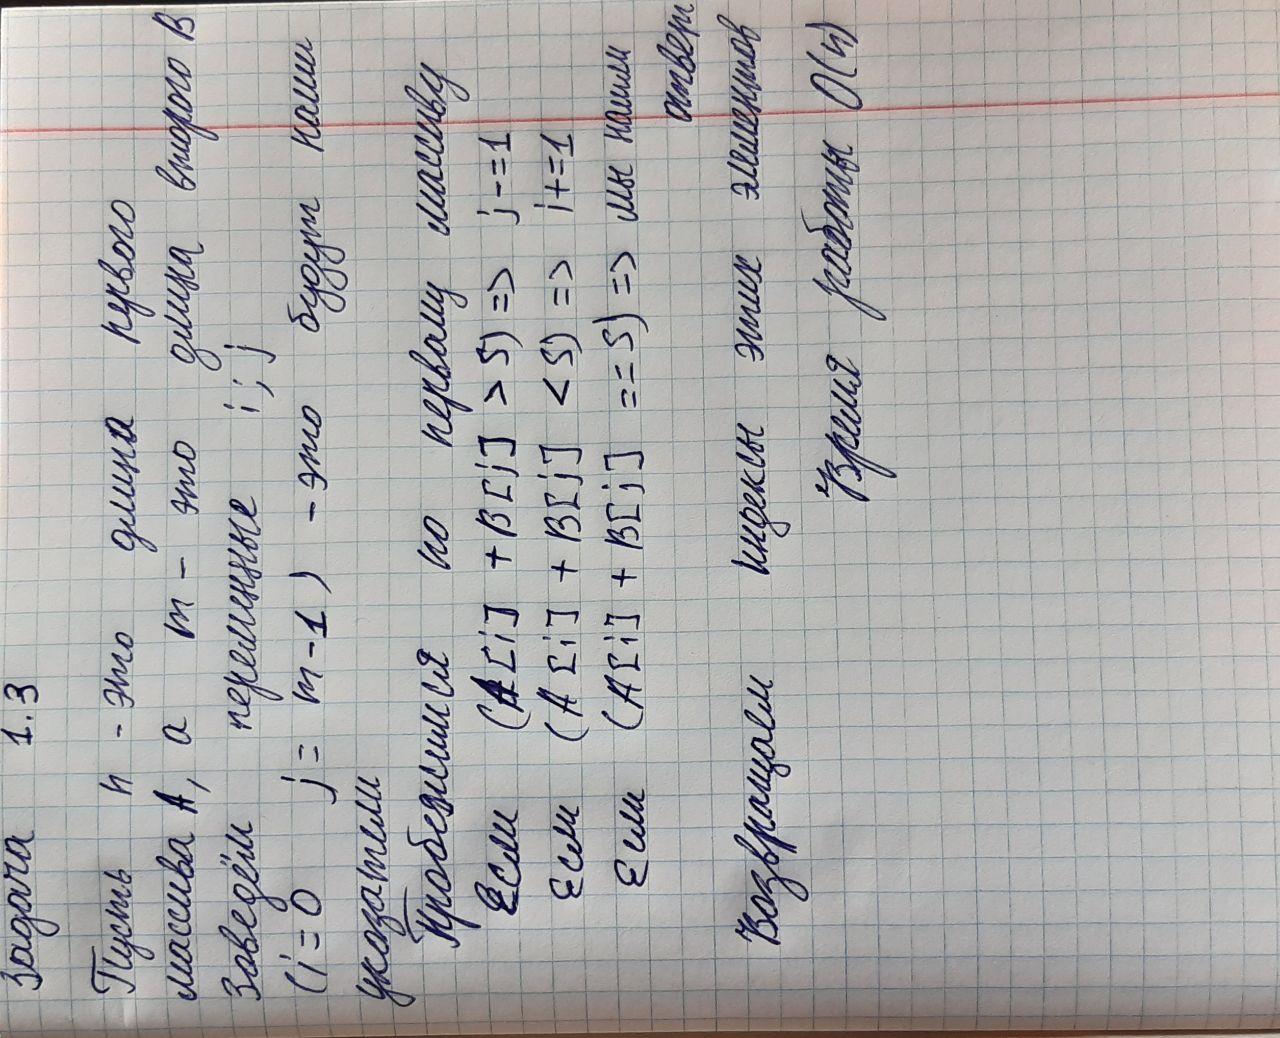 Задача 1.3
Пусть n - это длина первого
массива A, а m - это длина второго B
Заведём переменные i; j
(i = 0 j = m-1) - это будут наши
указатели
Пробежимся по первому массиву
Если (A[i] + B[j] > S) => j-=1
Если (A[i] + B[j] < S) => i+=1
Если (A[i] + B[j] == S) => мы нашли
ответ
Возвращаем индексы этих элементов
Время работы O(n)